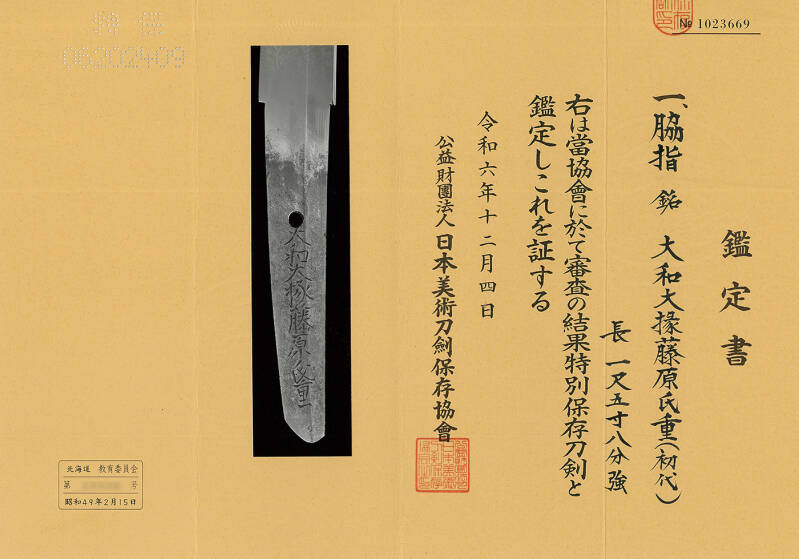 № 1023669
鑑定書
一、脇指 銘 大和大掾藤原氏重(初代)
長 一尺五寸八分強
右は當協會に於て審査の結果特別保存刀剣と
鑑定しこれを証する
令和六年十二月四日
公益財團法人 日本美術刀劍保存協會
大和大掾藤原氏重
特保
06202409
北海道 教育委員会
第 号
昭和49年2月15日